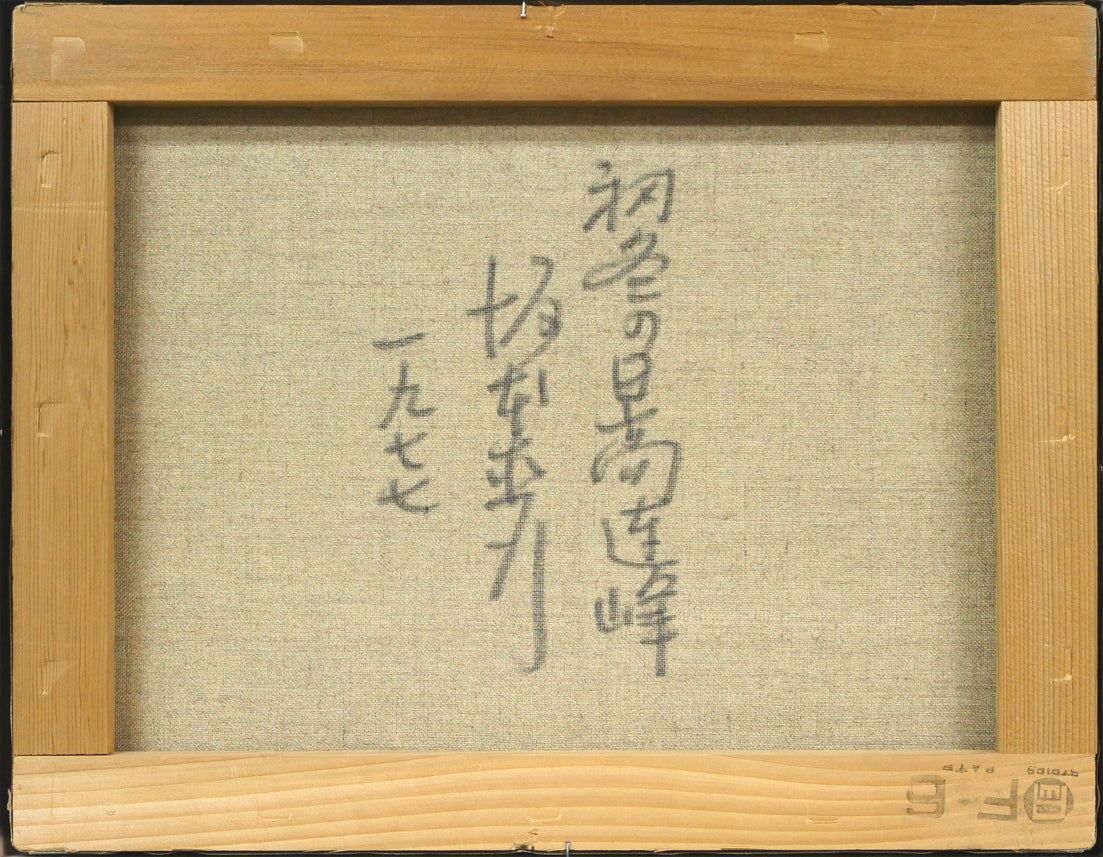 初冬の日高連峰
坂本直行
一九七七
F 6